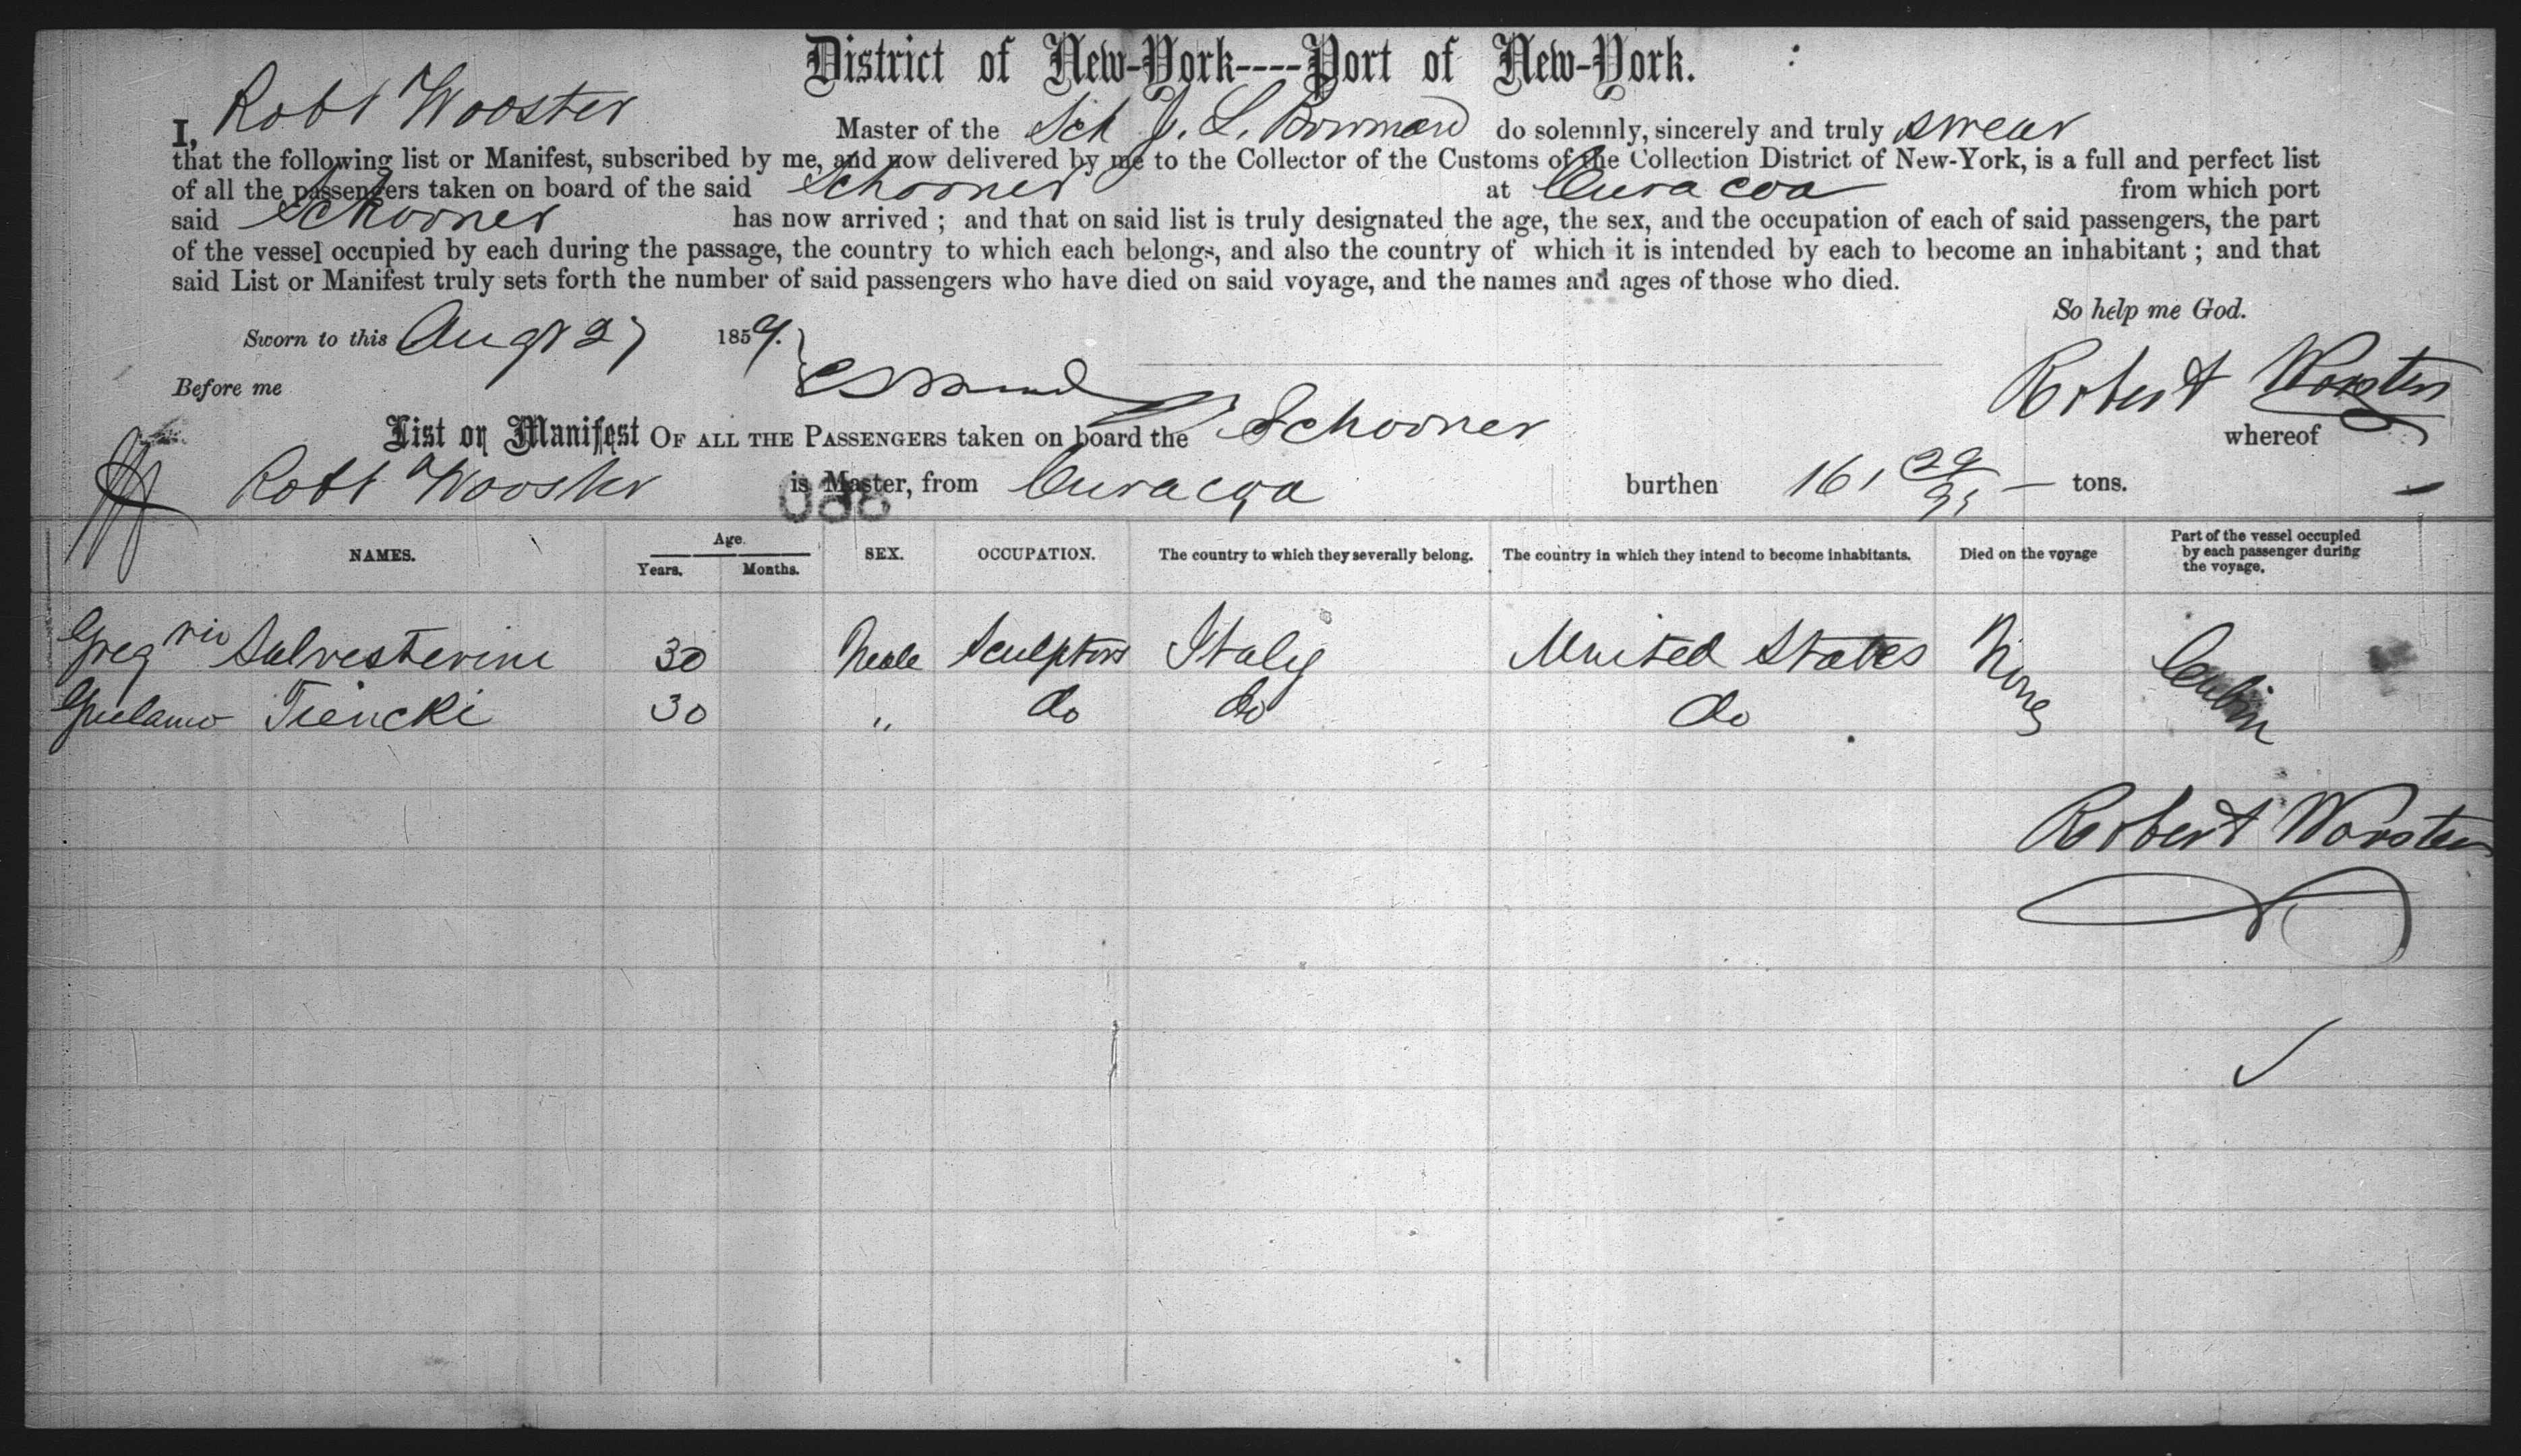 District of New-York----Port of New-York.
I, Robt Wooster Master of the Sch J. L. Bowman do solemnly, sincerely and truly swear
that the following list or Manifest, subscribed by me, and now delivered by me to the Collector of the Customs of the Collection District of New-York, is a full and perfect list
of all the passengers taken on board of the said Schooner at Curacoa from which port
said Schooner has now arrived ; and that on said list is truly designated the age, the sex, and the occupation of each of said passengers, the part
of the vessel occupied by each during the passage, the country to which each belongs, and also the country of which it is intended by each to become an inhabitant ; and that
said List or Manifest truly sets forth the number of said passengers who have died on said voyage, and the names and ages of those who died.
So help me God.
Sworn to this Augt 27 1859.
Before me
Robert Wooster
List or Manifest OF ALL THE PASSENGERS taken on board the Schooner whereof
Robt Wooster is Master, from Curacoa burthen 161 29/95 tons.
NAMES. Age. Years. Months. SEX. OCCUPATION. The country to which they severally belong. The country in which they intend to become inhabitants. Died on the voyage Part of the vessel occupied by each passenger during the voyage.
Gregrio Salvesterini 30 Male Sculptors Italy United States None Cabin
Gulamo Tiencki 30 " do do do
Robert Wooster